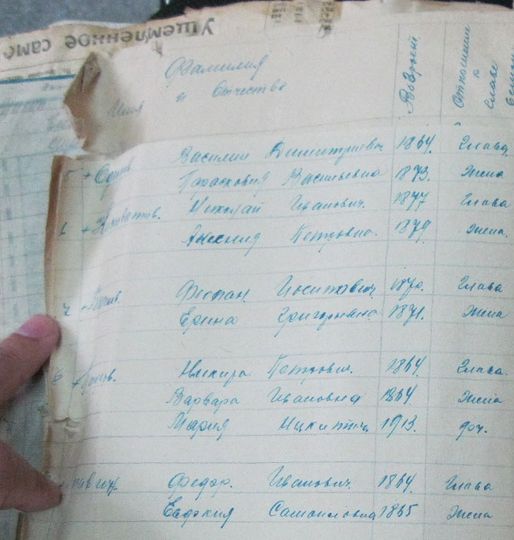 Ущемленное само
Фамилия
и Отчество
Имя
Возраст
Отношение
к
главе
Василий Димитриевич 1864 Глава
Парасковия Васильевна 1873. Жена
Николай Иванович. 1877 Глава
Петровна. 1879. Жена.
Иосипович. 1870. Глава
Ерина Григорьевна 1871. Жена
Никира Петрович. 1864 Глава.
Варвара Ивановна 1864 Жена
Мария Никитич. 1913. доч.
Федор. Иванович. 1864. Глава
Евдокия Самоиловна 1865 Жена